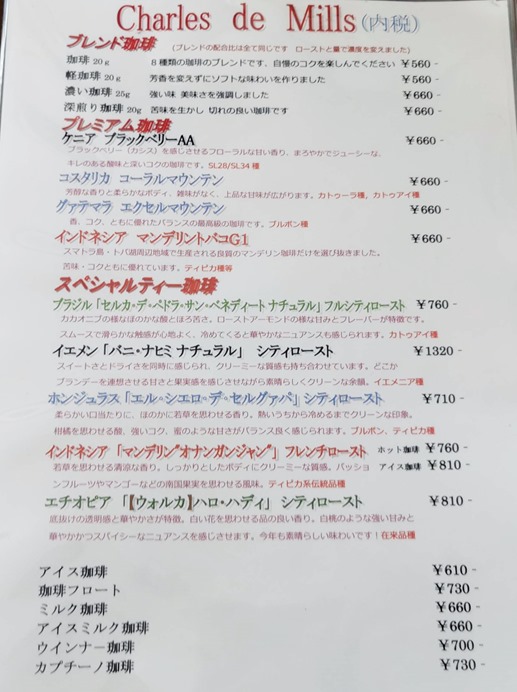 Charles de Mills(内税)
ブレンド珈琲 (ブレンドの配合比は全て同じです ローストと量で濃度を変えました)
珈琲 20g 8種類の珈琲のブレンドです、自慢のコクを楽しんでください ¥560-
軽珈琲 20g 芳香を変えずにソフトな味わいを作りました ¥560-
濃い珈琲 25g 強い味 美味さを強調しました ¥660-
深煎り珈琲 20g 苦味を生かし 切れの良い珈琲です ¥660-
プレミアム珈琲
ケニア ブラックベリーAA ¥660-
ブラックベリー(カシス)を感じさせるフローラルな甘い香り、まろやかでジューシーな、
キレのある酸味と深いコクの珈琲です。SL28/SL34 種
コスタリカ コーラルマウンテン ¥660-
芳醇な香りと柔らかなボディ、雑味がなく、上品な甘味が広がります。カトゥーラ種，カトゥアイ種
グァテマラ エクセルマウンテン ¥660-
香、コク、ともに優れたバランスの最高級の珈琲です。ブルボン種
インドネシア マンデリントバコG1 ¥660-
スマトラ島・トバ湖周辺地域で生産される良質のマンデリン珈琲だけを選び抜きました。
苦味・コクともに優れています。ティピカ種等
スペシャルティー珈琲
ブラジル「セルカ・デ・ペドラ・サン・ベネディート ナチュラル」フルシティロースト ¥760-
カカオニブの様なほのかな酸とほろ苦さ。ローストアーモンドの様な甘みとフレーバーが特徴です。
スムースで滑らかな触感が心地よく、冷めてくると華やかなニュアンスも感じられます。カトゥアイ種
イエメン「バニ・ナヒミ ナチュラル」 シティロースト ¥1320-
スイートさとドライさを同時に感じられ、クリーミーな質感も持ち合わせています。どこか
ブランデーを連想させる甘さと果実感を感じさせながら素晴らしくクリーンな余韻。イエメニア種
ホンジュラス「エル・シエロ・デ・セルグァパ」シティロースト ¥710-
柔らかい口当たりに、ほのかに若草を思わせる香り。熱いうちから冷めるまでクリーンな印象。
柑橘を思わせる酸、強いコク、蜜のような甘さがバランス良く感じられます。ブルボン、ティピカ種
インドネシア「マンデリン"オナンガンジャン"」フレンチロースト ホット珈琲 ¥760-
若草を思わせる清涼な香り。しっかりとしたボディにクリーミーな質感。パッショ アイス珈琲 ¥810-
ンフルーツやマンゴーなどの南国果実を思わせる風味。ティピカ系伝統品種
エチオピア 「【ウォルカ】ハロ・ハディ」 シティロースト ¥810-
底抜けの透明感と華やかさが特徴。白い花を思わせる品の良い香り。白桃のような強い甘みと
華やかかつスパイシーなニュアンスを感じさせます。今年も素晴らしい味わいです！在来品種
アイス珈琲 ¥610-
珈琲フロート ¥730-
ミルク珈琲 ¥660-
アイスミルク珈琲 ¥660-
ウインナー珈琲 ¥700-
カプチーノ珈琲 ¥730-